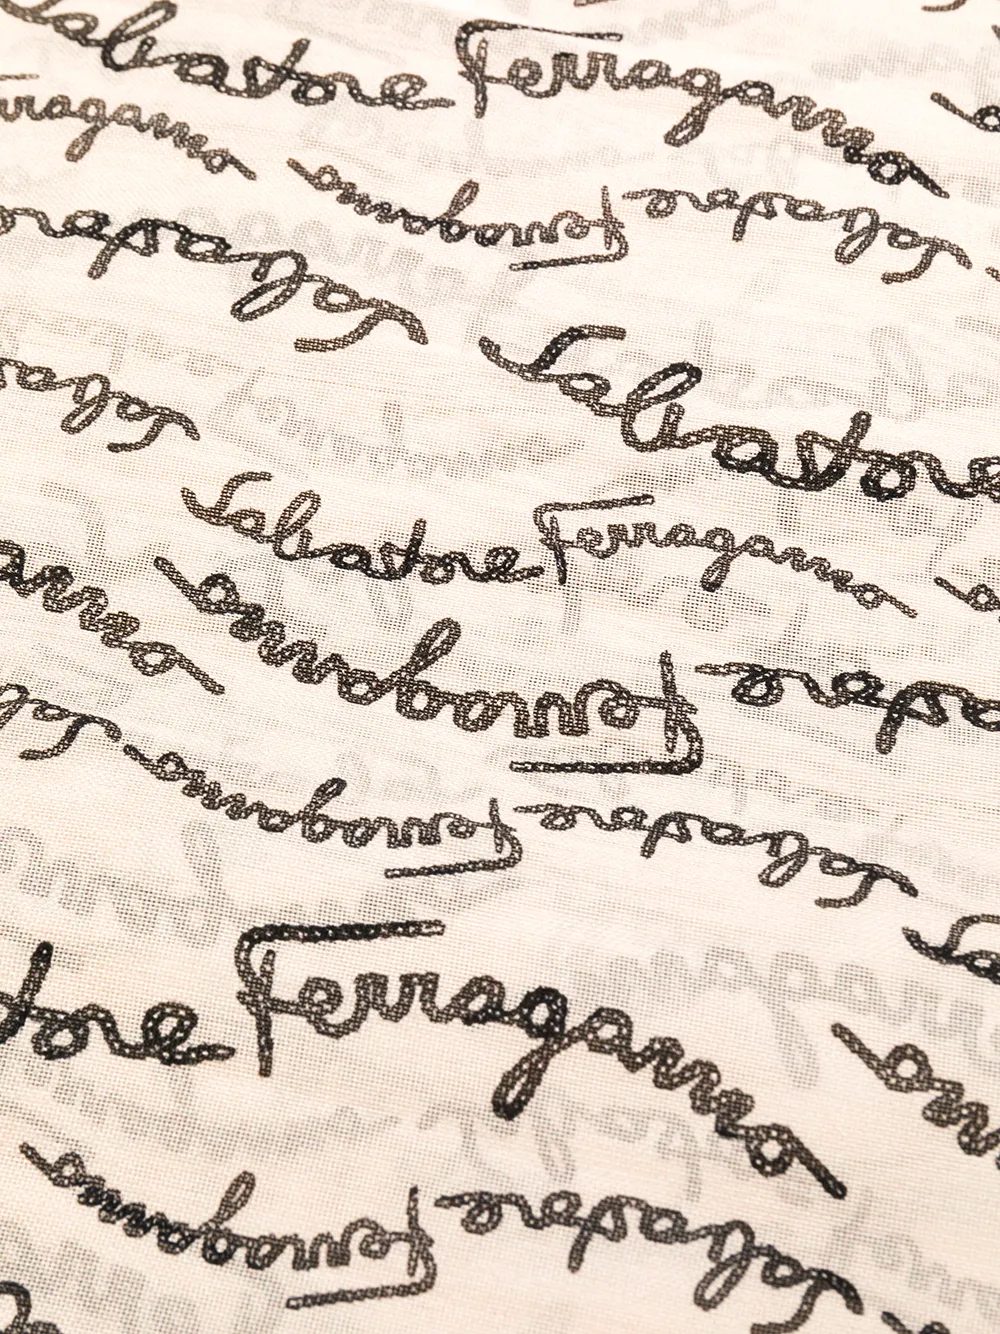 Salvatore Ferragamo
rragamo
Ferragamo Salvatore
Salvatore
Salvatore
Salvatore Ferragamo
Ferragamo Salvatore
Ferragamo Salvatore
tore Ferragamo
Ferragamo Salvatore